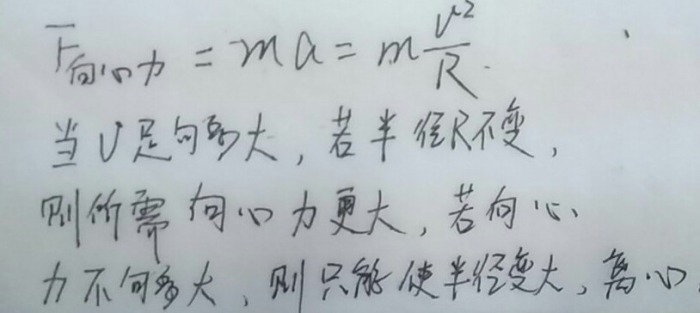 F向心力 = ma = m v²/R.
当v足够大，若半径R不变，
则所需向心力更大，若向心
力不够大，则只能使半径变大，离心